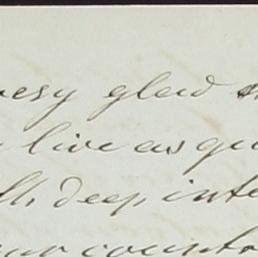 very glad
live as
deep inte
our countr